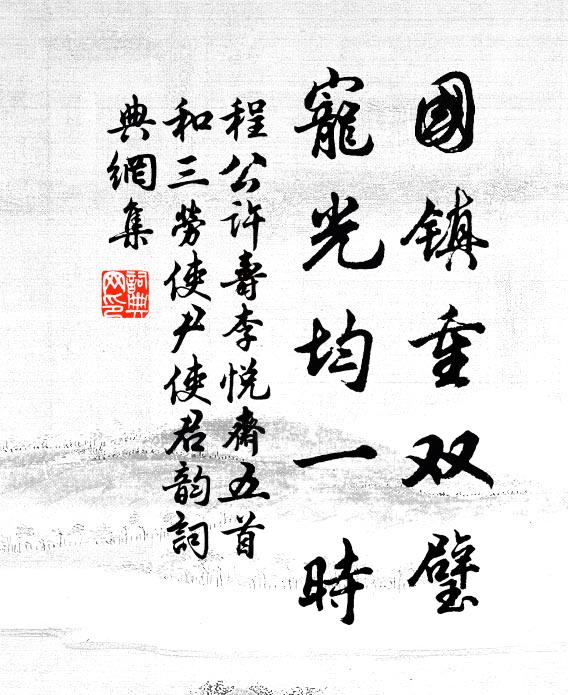 國鎮重双璧
寵光均一時
程公许壽李悦齋五首
和三劳使尹使君韵詞
典網集
詞典网印